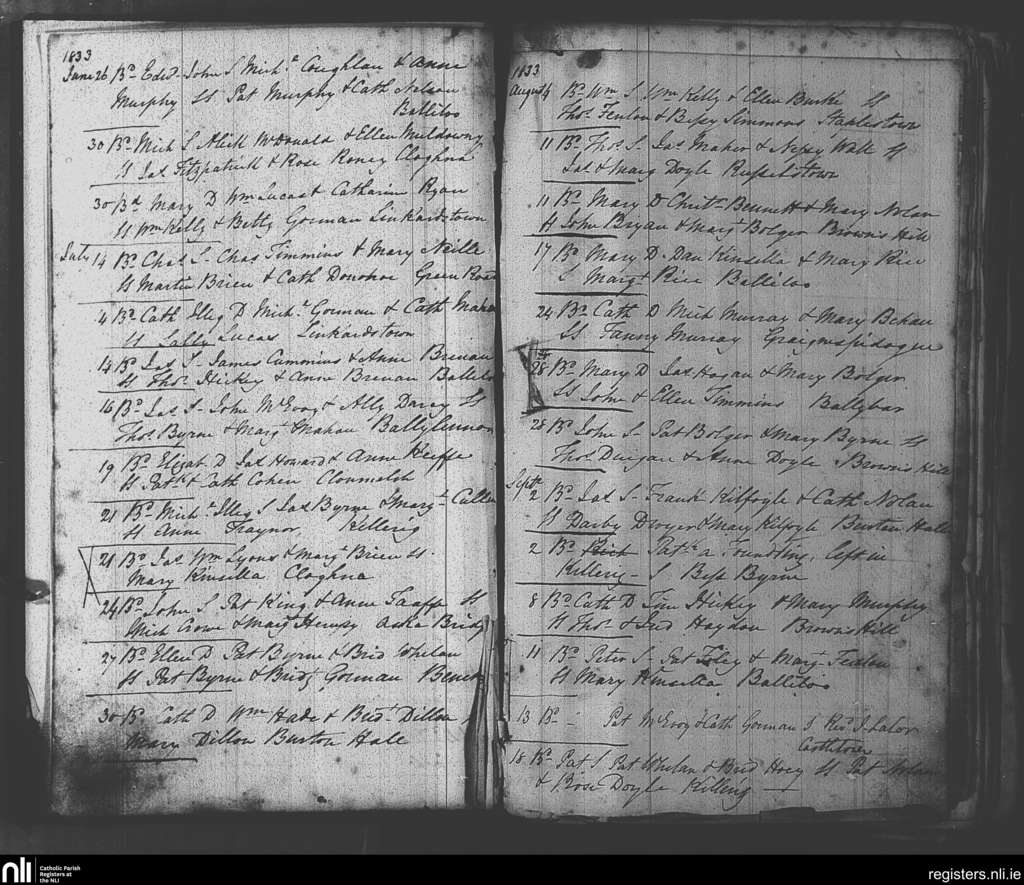 1833
June 26 Bd Edwd John S Michl Coughlan & Anne
Murphy Ss Pat Murphy & Cath Nelson
Balliloo
30 Bd Mich S Mich McDonald & Ellen Muldowny
Ss Jas Fitzpatrick & Rose Roney Cloghna
30 Bd Mary D Wm Lucas & Catharine Ryan
Ss Wm Kelly & Betty Gorman Linkardstown
July 14 Bd Chas S Chas Timmins & Mary Neille
Ss Martin Brien & Cath Donohoe Green Road
4 Bd Cath Illeg D Michl Gorman & Cath Mahon
Ss Sally Lucas Linkardstown
14 Bd Jas S James Cummins & Anne Brenan
Ss Thos Hickey & Anne Brenan Balliloo
16 Bd Jas S John McEvoy & Ally Darcy Ss
Thos Byrne & Margt Mahon Ballylennon
19 Bd Elizat D Jas Howard & Anne Keiffe
Ss Patk & Cath Cohen Clonmelsh
21 Bd Michl Illeg S Jas Byrne & Margt Cullen
Ss Anne Traynor Killerig
21 Bd Jas Wm Lyons & Margt Brien Ss
Mary Kinsella Cloghna
24 Bd John S Pat King & Anne Taaffe Ss
Mich Crowe & Margt Hempsy Aska Bridg
27 Bd Ellen D Pat Byrne & Brid Whelan
Ss Pat Byrne & Bridgt Gorman
30 Bd Cath D Wm Hade & Bridt Dillon
Mary Dillon Burton Hall
1833
August 4 Bd Wm S Wm Kelly & Ellen Burke Ss
Thos Fenlon & Bessy Simmons Staplestown
11 Bd Thos S Jas Maher & Nessy Wall Ss
Jas & Mary Doyle Russelstown
11 Bd Mary D Christr Bennett & Mary Nolan
Ss John Bryan & Margt Bolger Browns Hill
17 Bd Mary D Dan Kinsella & Mary Rice
S Margt Rice Balliloo
24 Bd Cath D Mich Murray & Mary Behan
Ss Fanny Murray Graiguespidogue
28 Bd Mary D Jas Hogan & Mary Bolger
Ss John & Ellen Timmins Ballybar
28 Bd John S Pat Bolger & Mary Byrne Ss
Thos Duigan & Anne Doyle Browns Hill
Septr 2 Bd Jas S Frank Kilfoyle & Cath Nolan
Ss Darby Dwyer & Mary Kilfoyle Burton Hall
2 Bd Patk a Foundling, left in
Killerig S Bess Byrne
8 Bd Cath D Tim Hickey & Mary Murphy
Ss Thos & Jud Haydon Browns Hill
11 Bd Peter S Pat Foley & Margt Fenlon
Ss Mary Kinsella Balliloo
13 Bd Pat McEvoy & Cath Gorman J Revd J. Lalor
Castletown
18 Bd Pat S Pat Whelan & Brid Hoey Ss Pat Nolan
& Rose Doyle Killerig
nli Catholic Parish
Registers at
the NLI
registers.nli.ie